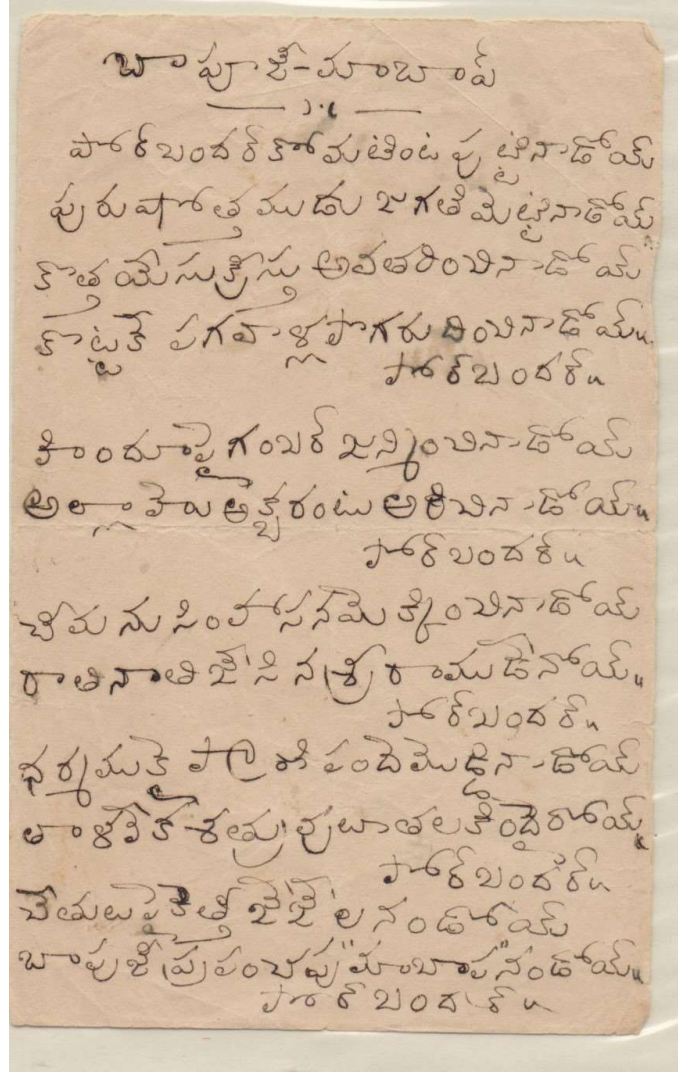 బాపూజీ-మాబాప్
పోర్‌బందర్ కోమటింట పుట్టినాడోయ్
పురుషోత్తముడు జగతి మెట్టినాడోయ్
కొత్త యేసుక్రీస్తు అవతరించినాడోయ్
కొట్టకే పగవాళ్ల పొగరు దించినాడోయ్॥
పోర్‌బందర్॥
హిందూపైగంబర్ జన్మించినాడోయ్
అల్లాహెూ అక్బరంటు అరిచినాడోయ్॥
పోర్‌బందర్॥
చీమను సింహాసనమెక్కించినాడోయ్
రాతినాతిజేసిన శ్రీరాముడేనోయ్॥
పోర్‌బందర్॥
ధర్మముకై ప్రాణ పందెమొడ్డినాడోయ్
తాళలేక శత్రువు బాతలకిందైరోయ్
పోర్‌బందర్॥
చేతులు పైకెత్తి జేజేలనండోయ్
బాపుజీ ప్రపంచపు "మాబాప"నండోయ్॥
పోర్‌బందర్॥